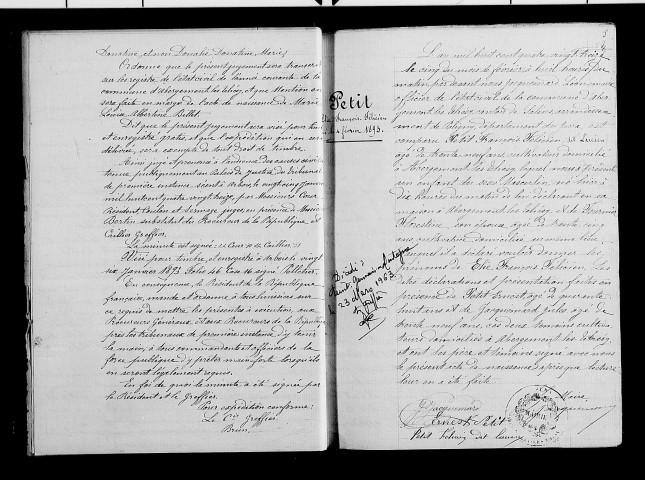 Donatine, et non Donatie Donatine Marie;
Ordonne que le present jugement sera transcrit
sur les registres de l'état civil de l'année courante de la
commune d'Abergement les thésy, et que mention en
sera faite en marge de l'acte de naissance de Marie
Louise Albertine Billet.
Dit que le present jugement sera visé pour timbre
et enregistré gratis, et que l'expédition qui en sera
délivrée, sera exempte de tout droit de timbre.
Ainsi jugé et prononcé à l'audience des causes civiles
tenue publiquement au Palais de Justice du tribunal
de première instance séant à Arbois, le vingt cinq janvier
mil huit cent quatre vingt treize, par Messieurs Cour
Président, Coulon et juges, en présence de Monsieur
Bertin substitut du Procureur de la République, et
Cuillier Greffier.
La minute est signée: Cour et Cuillier
Visé pour timbre et enregistré à Arbois le vingt
six janvier 1893. Folio 46 Case 16 signé Pelletier.
En conséquence, le Président de la République
française, mande et ordonne à tous huissiers sur
ce requis de mettre les présentes à exécution, aux
Procureurs Généraux et aux Procureurs de la République
près les tribunaux de première instance d'y tenir
la main, à tous commandants et officiers de la
force publique d'y prêter main forte lorsqu'ils
en seront légalement requis.
En foi de quoi la minute a été signée par
le Président et le Greffier.
Pour expédition conforme:
Le Cis Greffier
Brun
Petit
Elie François Félicien
le 4 février 1893.
Décédé à
Saint Germain en Montagne
le 23 Mars 1963
5
L'an mil huit cent quatre vingt treize
le cinq du mois de février à huit heures du
matin par devant nous Jacquemard
officier de l'état civil de la commune d'Aber
gement les thésy, canton de Salins arrondisse
ment de Poligny, département du Jura est
comparu Petit François Félicien dit Lucien
âgé de trente neuf ans, cultivateur domicilié
à Abergement les thésy, lequel nous a présenté
un enfant du sexe Masculin, né hier à
dix heures du matin et l'en déclarant en sa
maison à Abergement les thésy, et de Fournier
Florestine son épouse, âgée de trente cinq
ans, cultivatrice domiciliée au même lieu,
lequel il a déclaré vouloir donner les
prénoms de Elie François Félicien. Les
dites déclarations et présentation faites en
présence de Petit Ernest âgé de quarante
huit ans et de Jacquemard Jules âgé de
trente neuf ans, ces deux témoins cultiva
teurs domiciliés à Abergement les thésy,
et ont les père et témoins signé avec nous
le présent acte de naissance après que lecture
leur en a été faite.
Le Maire
Jacquemard
Ernest Petit
MAIRIE